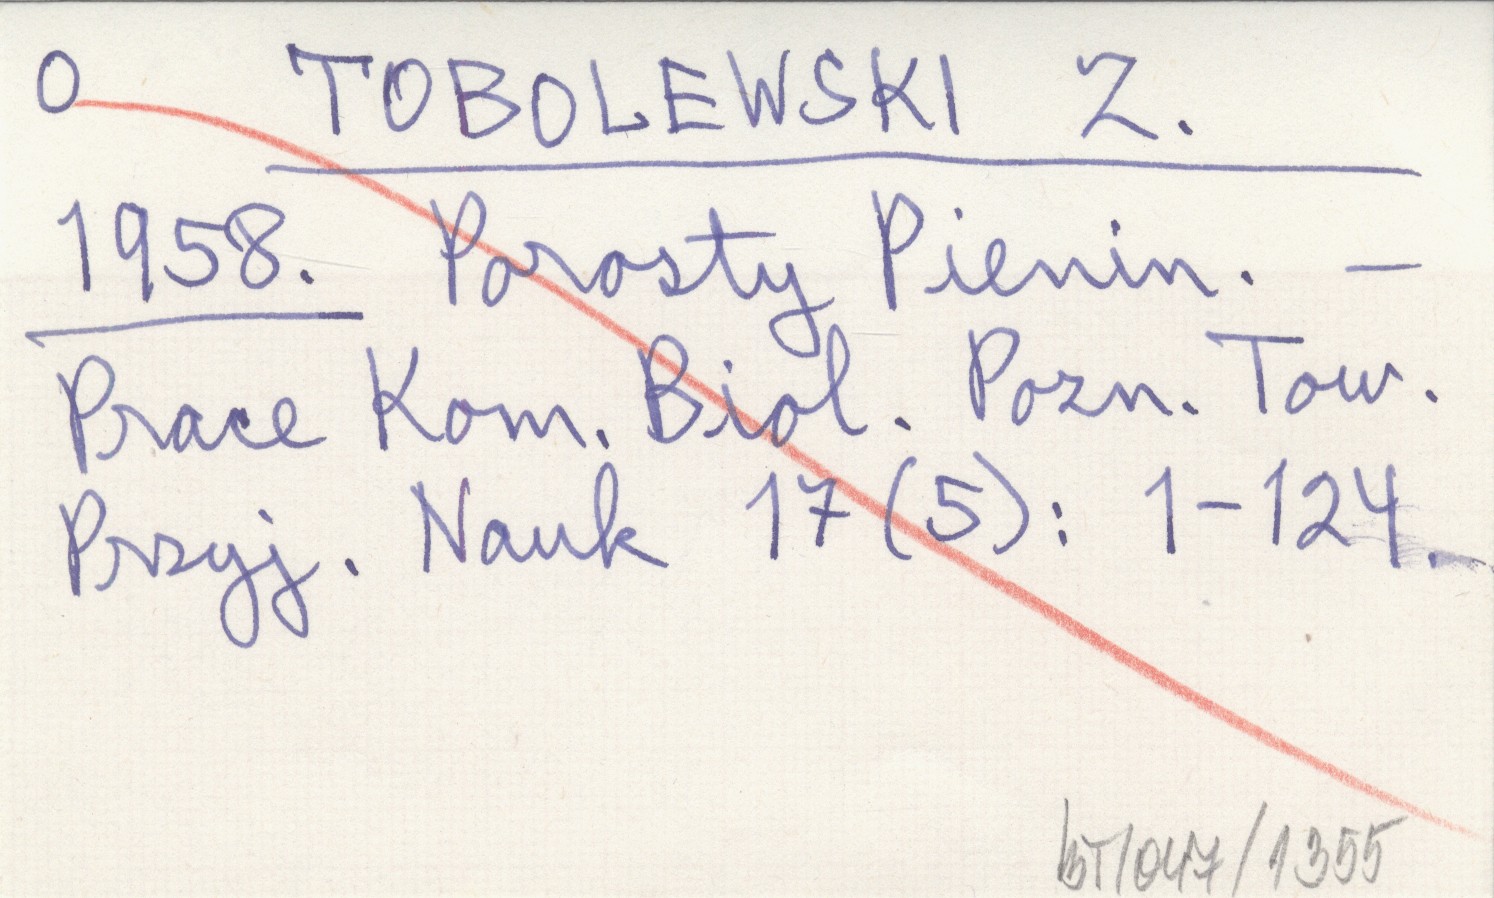 O TOBOLEWSKI Z.
1958. Porosty Pienin. –
Prace Kom. Biol. Pozn. Tow.
Przyj. Nauk 17(5): 1–124.
/1355